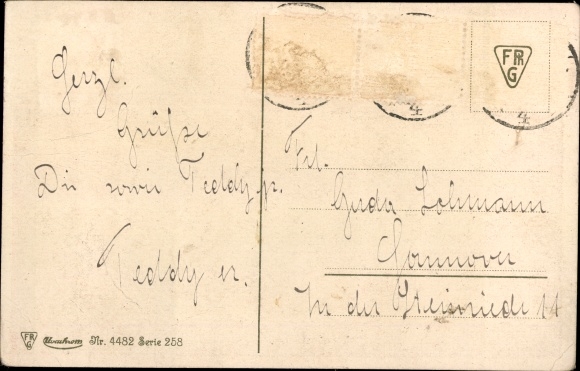 Herzl.
Grüße
Dir sowie Teddy jr.
Teddy sr.
Frl.
Gerda Lohmann
Hannover
In der Steinriede 11
FR G
FR G Novochrom Nr. 4482 Serie 258
4
4